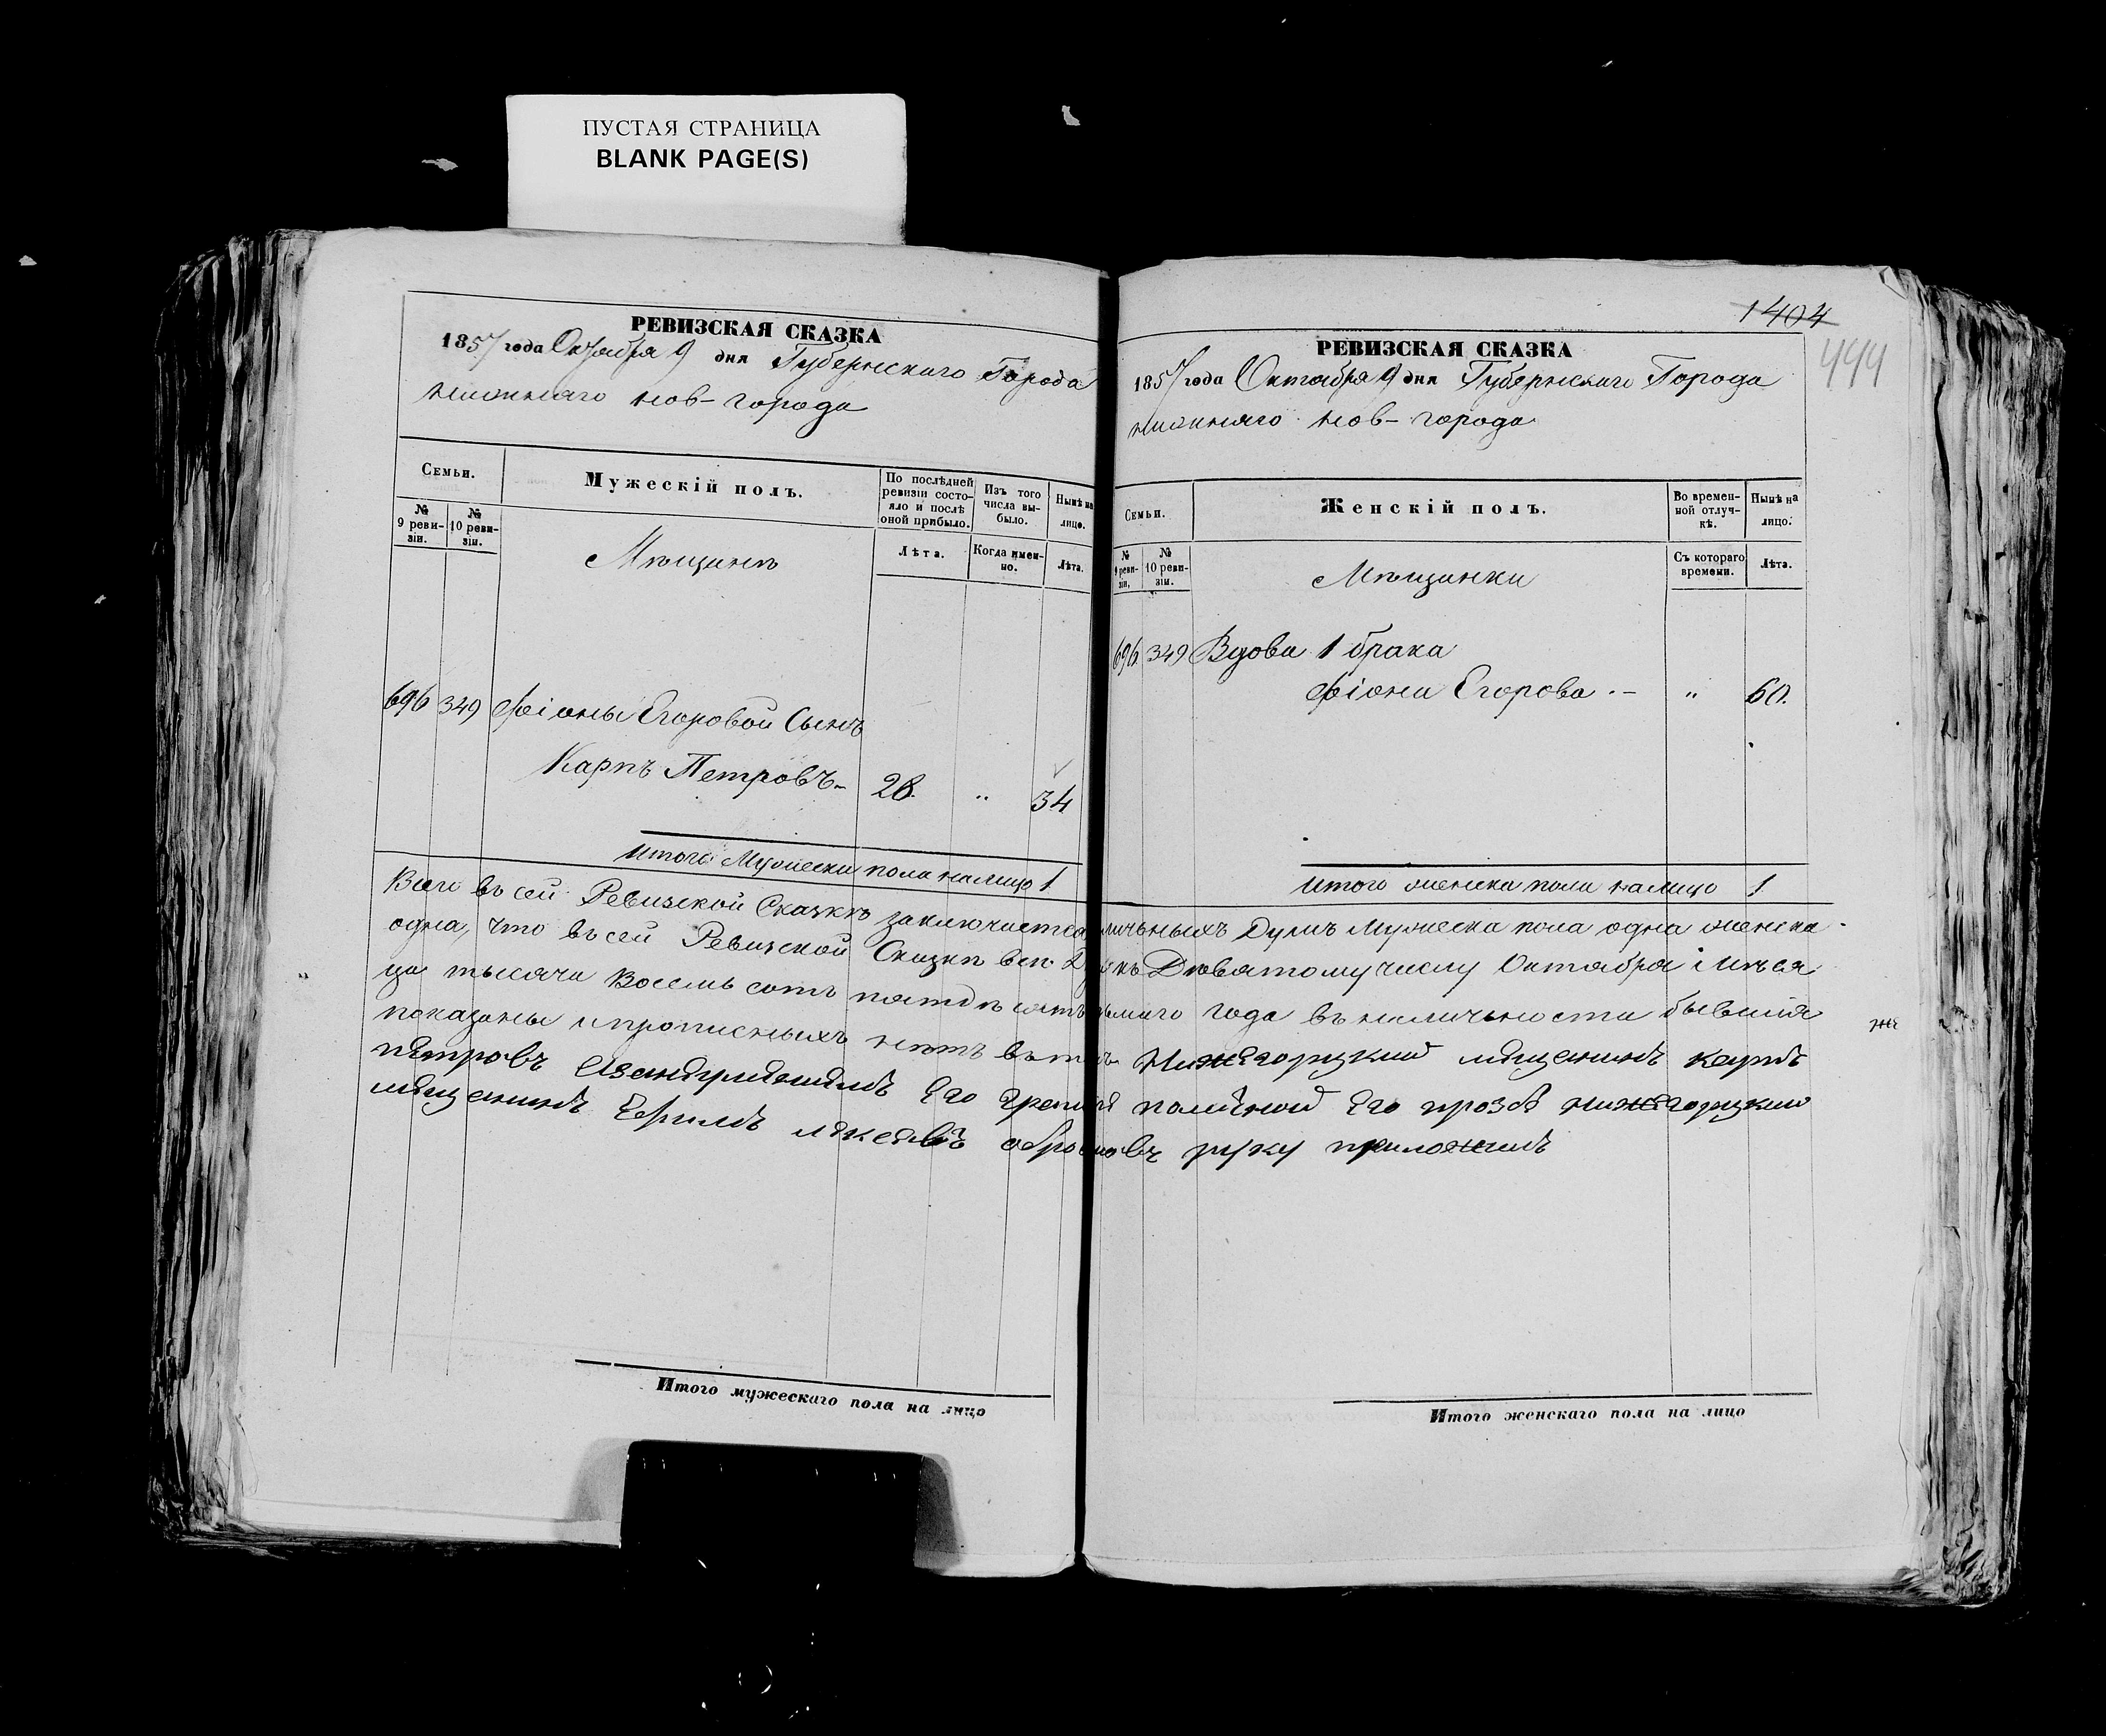 ПУСТАЯ СТРАНИЦА
BLANK PAGE(S)
РЕВИЗСКАЯ СКАЗКА
1857 года Октября 9 дня Губернскаго Города
нижняго нов-города
Семьи.
Мужескій полъ.
По послѣдней ревизіи состояло и послѣ оной прибыло.
Изъ того числа выбыло.
Нынѣ на лицо.
№ 9 ревизіи.
№ 10 ревизіи.
Лѣта.
Когда именно.
Лѣта.
Мѣщанъ
696 349 Фіоны Егоровой Сынъ
Карпъ Петровъ- 28. " 34
Итого Мужеска пола налицо 1
1404
444
РЕВИЗСКАЯ СКАЗКА
1857 года Октября 9 дня Губернскаго Города
нижняго нов-города
Семьи.
Женскій полъ.
Во временной отлучкѣ.
Нынѣ на лицо.
№ 9 ревизіи.
№ 10 ревизіи.
Съ котораго времени.
Лѣта.
Мѣщанки
696 349 Вдова 1 брака
Фіона Егорова -- " 60.
Итого женска пола налицо 1
Всего въ сей Ревизской Сказкѣ заключается личьныхъ Душъ Мужеска пола одна женска
одна, что въ сей Ревизской Сказкѣ всѣ къ Девятому числу Октября Мѣся
ца тысяча Восемь сотъ пятдѣсятъ года въ наличьности бывшія
показаны и прописныхъ нѣтъ въ томъ Нижегорцкий мещенинъ карпъ
петровъ его поличной его прозбе нижегорцкий
мещенинъ руку приложилъ
Итого мужескаго пола на лицо
Итого женскаго пола на лицо